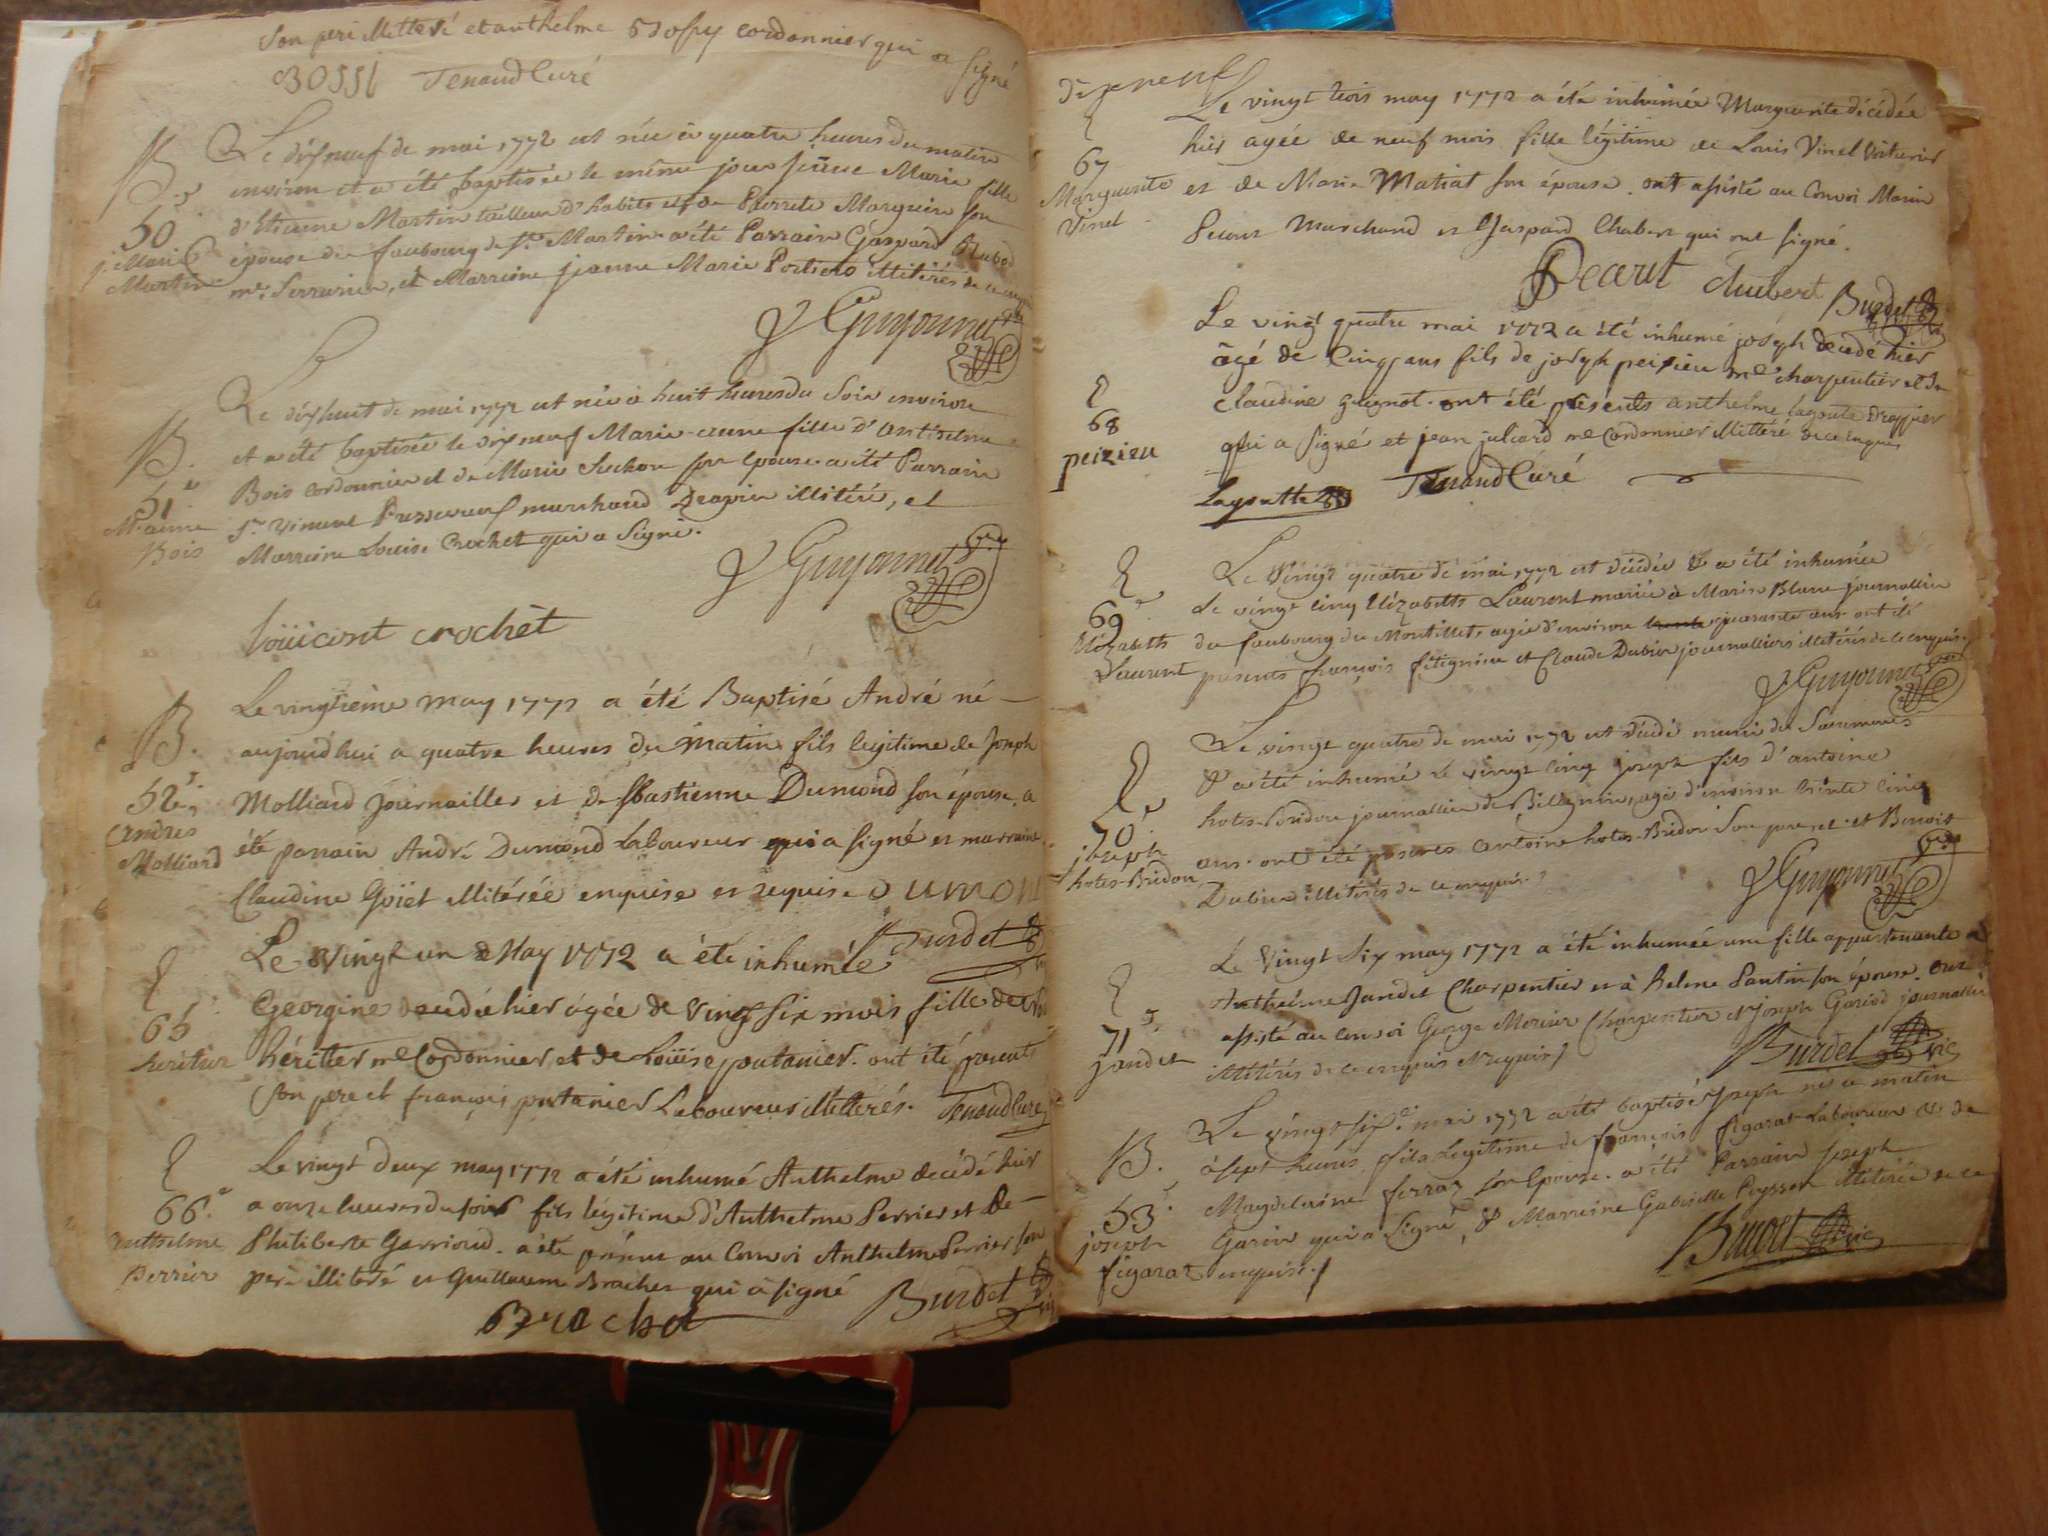 Son pere illitteré et anthelme Bossy cordonnier qui a signé
BOSSI Tenaud Curé
B.
50
j. Marie
Martin
Le dixneuf de mai 1772 est née à quatre heures du matin
environ et a été baptisée le même jour jeanne Marie fille
d'Etienne Martin tailleur d'habits et de Pierrette Marguin son
épouse du faubourg de St Martin. a été Parrain Gaspard
me. Serrurier, et Marreine jeanne Marie illitérés de ce enquis
J Guyonnet
B.
51e
M. anne
Bois
Le dixhuit de mai 1772 est née à huit heures du Soir environ
et a été baptisée le dixneuf Marie-anne fille d'Antelme
Bois cordonnier et de Marie Suchon son épouse. a été Parrain
Sr. Vincent marchand Drapier illitéré, et
Marreine Louise Crochet qui a Signé.
J Guyonnet
crochet
B.
52e
Andres
Molliard
Le vingtième may 1772 a été Baptisé André né
aujourd'hui a quatre heures du Matin fils legitime de Joseph
Molliard Journailler et de Sbastienne Dumond son épouse, a
été parrain André Dumond Laboureur qui a signé et marraine
Claudine Goïet illitérée enquise et requise DUMON
Burdet
65
heritier
Le vingt un de May 1772 a été inhumée
Georgine decedée hier agée de vingt six mois fille de
héritier me Cordonnier et de Loüise poutanier. ont été presents
son pere et françois putanier Laboureur illitterés. Tenaud Curé
66e
Anthelme
Perrier
Le vingt deux may 1772 a été inhumé Anthelme decédé hier
a onze heures du soir fils légitime d'Anthelme Perrier et De
Philiberte Garrioud. a été présent au Convoi Anthelme Perrier son
pere illiteré et Guillaume Brachet qui a signé
Brachet Burdet vic
67
Marguerite
Vinel
Le vingt trois may 1772 a été inhumée Marguerite décédée
hier agée de neuf mois fille légitime de Louis Vinel Voiturier
et de Marie Matiat son épouse. ont assisté au Convoi Marin
Marchand et Gaspard Chabert qui ont signé.
chabert Burdet
68
peizieu
Le vingt quatre mai 1772 a été inhumé joseph decedé hier
âgé de Cinq ans fils de joseph peizieu me charpentier et de
claudine guignot. ont été présents anthelme lagoute Drappier
qui a signé et jean juliard me Cordonnier illitteré de ce enquis
Lagoutte Tenaud Curé
69e
Elizabeth
Laurent
Le vingt quatre de mai 1772 est décédée & a été inhumée
le vingt cinq Elizabeth Laurent mariée à Marin Blanc journallier
du faubourg du Montillet agée d'environ quarante ans ont été
présents françois et Claude Dubieu journalliers illetérés de ce enquis
J Guyonnet
70e
joseph
hotes-Bridon
Le vingt quatre de mai 1772 est décédé muni des Sacrements
& a été inhumé le vingt cinq joseph fils d'antoine
hotes-Bridon journallier de Billignin, agé d'environ trente cinq
ans. ont été présents antoine hotes-Bridon Son pere et Benoit
Dubieu illitérés de ce enquis.
J Guyonnet
71e
jandet
Le vingt six may 1772 a été inhumée une fille appartenante à
Anthelme Jandet Charpentier et à Helene Pantin son épouse. ont
assisté au Convoi George Mercier Charpentier et Joseph Gariod journallier
illitérés de ce enquis et requis
Burdet vic
B.
53e
joseph
figarat
Le vingt sixe. mai 1772 a été baptisé Joseph né ce matin
à sept heures fils Legitime de françois figarat Laboureur & de
Magdelaine ferraz son épouse. a été Parrain joseph
Garin qui a Signé, & Marreine Gabrielle Peysson illitérée de ce
enquise.
Burdet vic